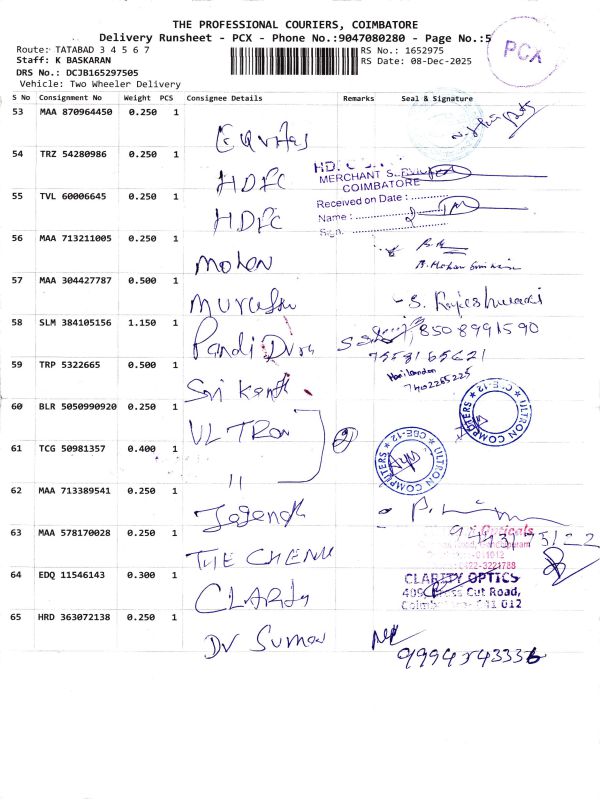 THE PROFESSIONAL COURIERS, COIMBATORE
Delivery Runsheet - PCX - Phone No.:9047080280 - Page No.:5
Route: TATABAD 3 4 5 6 7
RS No.: 1652975
Staff: K BASKARAN
RS Date: 08-Dec-2025
DRS No.: DCJB165297505
Vehicle: Two Wheeler Delivery
PCX
S No Consignment No Weight PCS Consignee Details Remarks Seal & Signature
53 MAA 870964450 0.250 1
Equitas
54 TRZ 54280986 0.250 1
HDFC
MERCHANT S
COIMBATORE
Received on Date :
Name :
Sign.
55 TVL 60006645 0.250 1
HDFC
56 MAA 713211005 0.250 1
Mohan
57 MAA 304427787 0.500 1
Murugesu
S. Rajeshwari
58 SLM 384105156 1.150 1
Pandi Dura
8508991590
7558165621
59 TRP 5322665 0.500 1
Sri Kanth
7402285225
60 BLR 5050990920 0.250 1
ULTRON
2
ULTRON COMPUTERS ★ CBE-12 ★
61 TCG 50981357 0.400 1
"
ULTRON COMPUTERS ★ CBE-12 ★
62 MAA 713389541 0.250 1
Jagendh
63 MAA 578170028 0.250 1
THE CHENN
64 EDQ 11546143 0.300 1
CLARITY
CLARITY OPTICS
409, Cross Cut Road,
Coimbatore-641 012
65 HRD 363072138 0.250 1
Dr Suman
9994543336